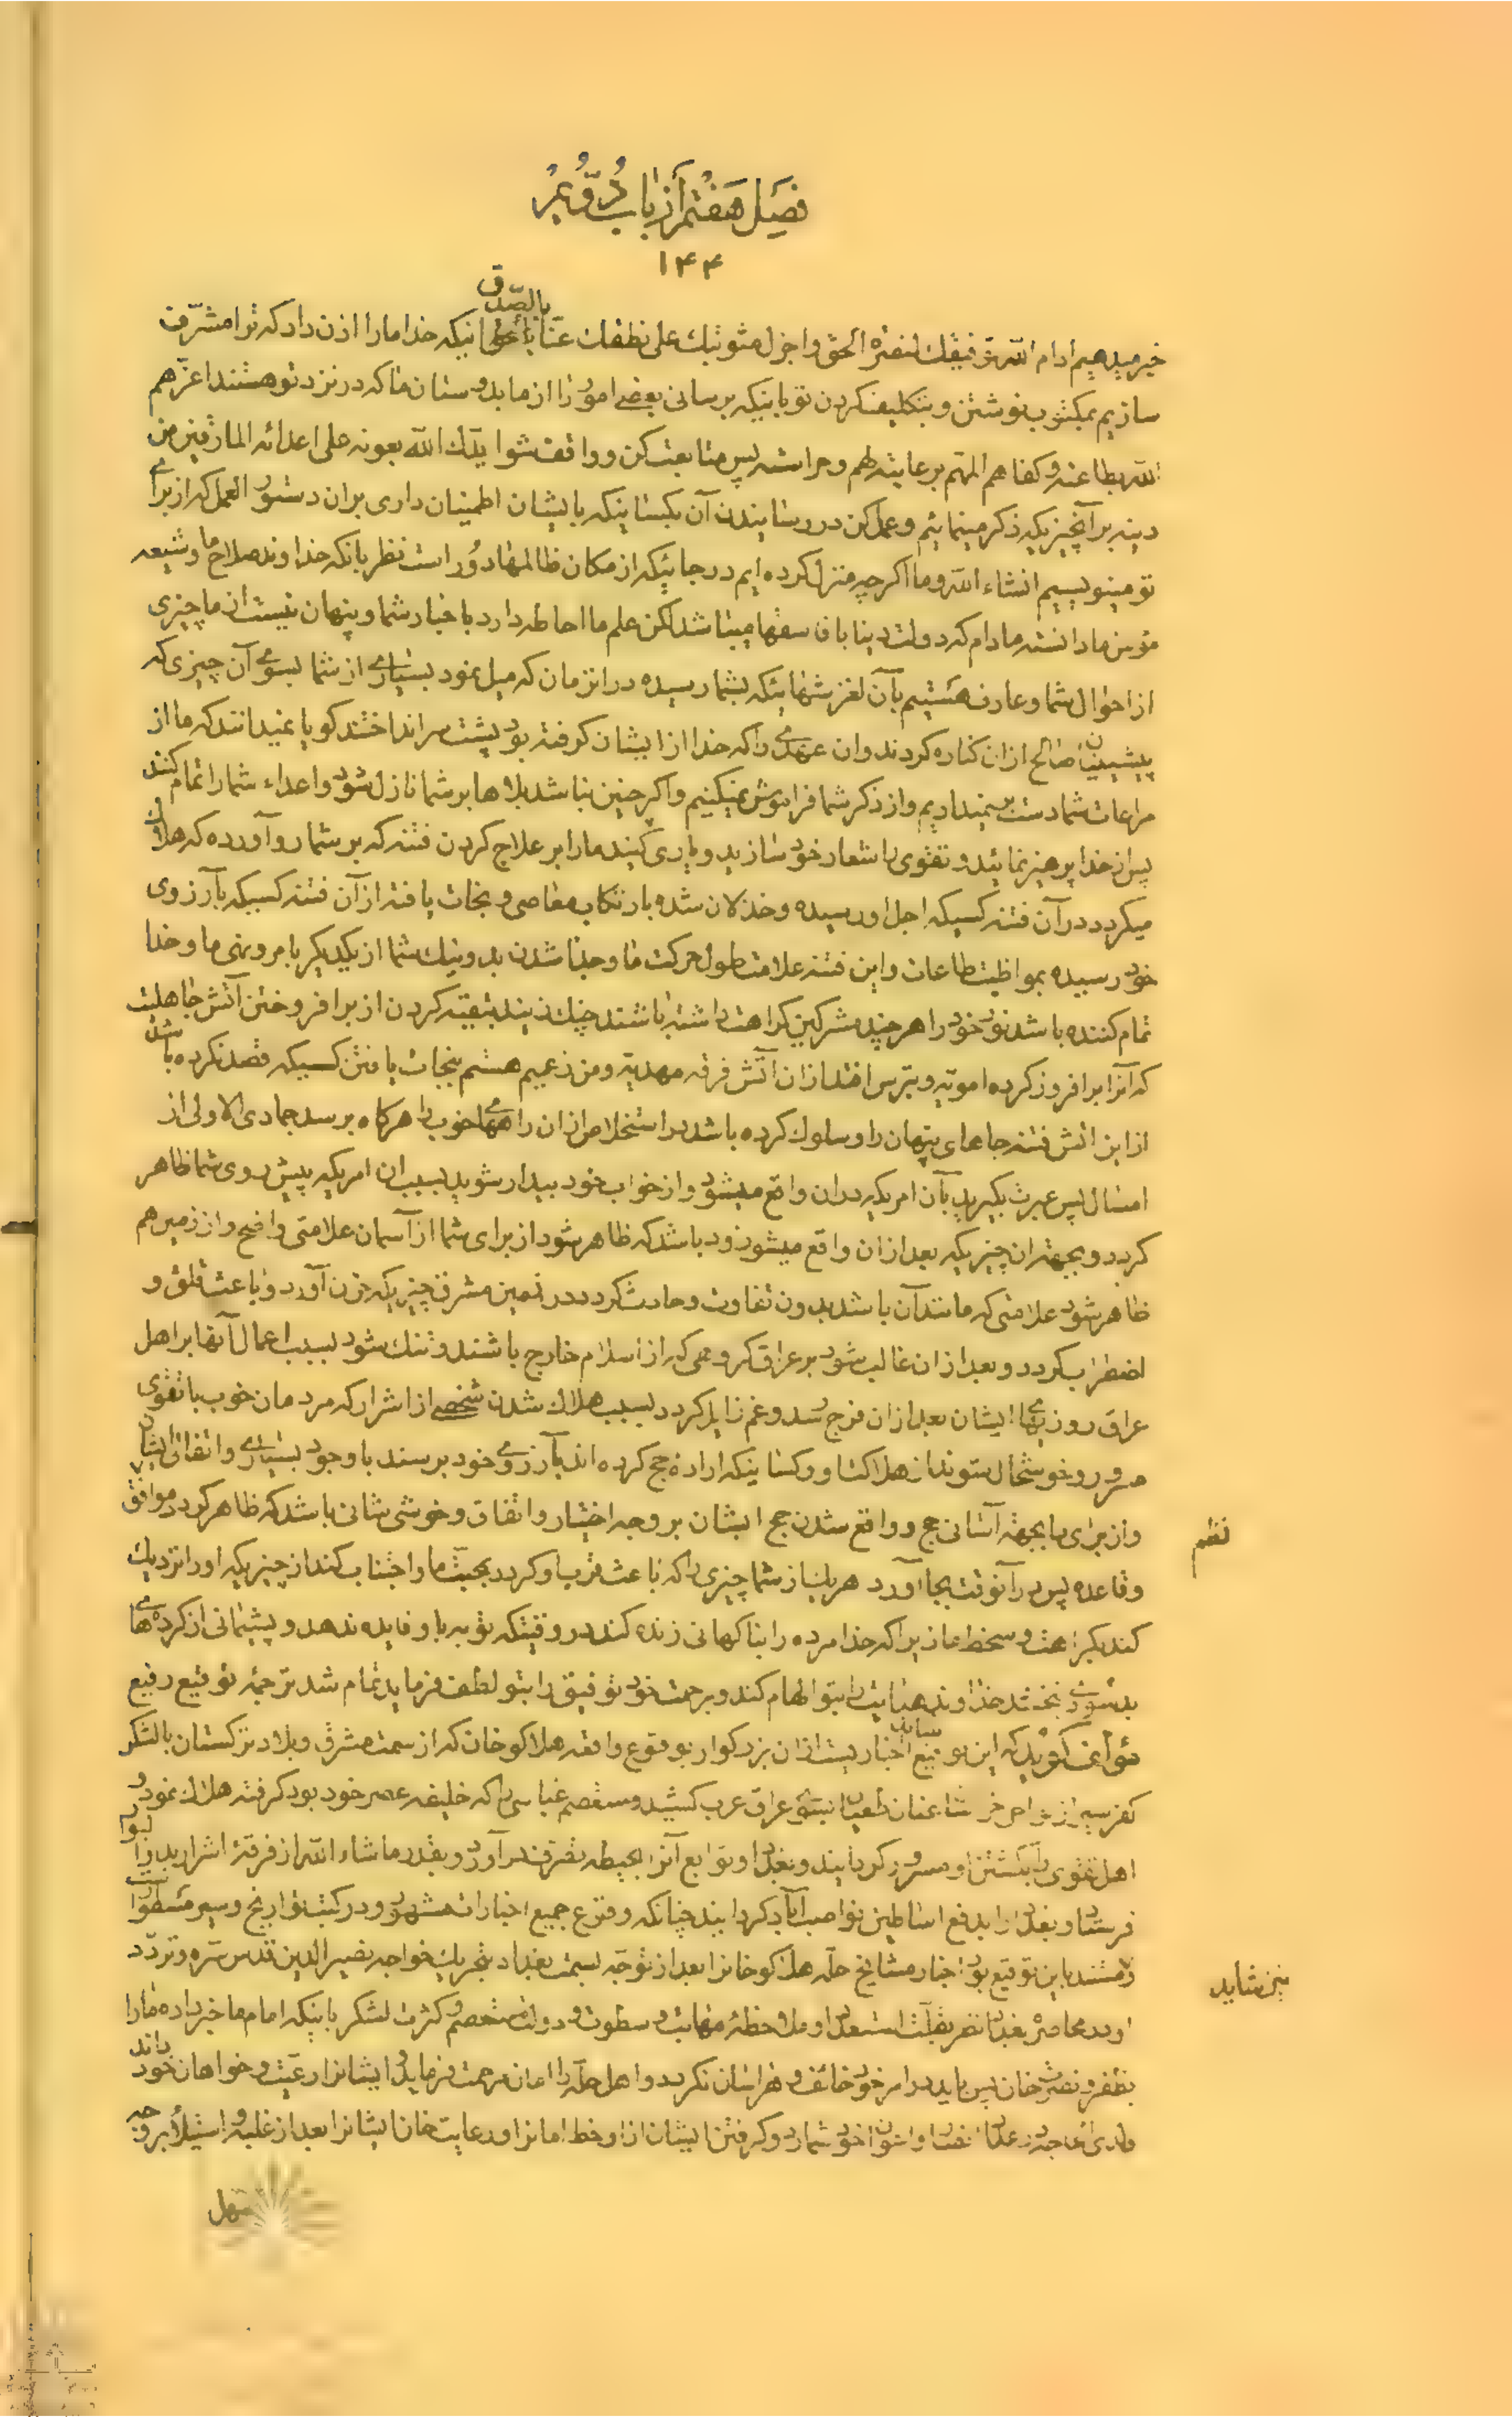 فصل هفتم از باب دوّم
۱۴۴
خبر میدهیم ادام اللّه توفیقك لنصرة الحق و اجزل مثوبتك علی نطقك عنّا بالصّدق باینکه خدا ما را اذن داد که ترا مشرّف
سازیم بمکتوب نوشتن و بتکلیف کردن تو باینکه برسانی بعضی امور را از ما بدوستان ما که در نزد تو هستند اعزّهم
اللّه بطاعته و کفاهم المهم برعایته لهم و حراسته پس متابعت کن و واقف شو ایدّك اللّه بعونه علی اعدائه المارقین من
دینه بر آنچیزیکه ذکر مینمائیم و عمل کن در رسانیدن آن بکسانیکه بایشان اطمینان داری بران دستور العمل که از برای
تو مینویسیم انشاء اللّه و ما اگر چه منزل کرده ایم در جائیکه از مکان ظالمها دور است نظر بانکه خداوند صلاح ما و شیعه
مؤمن ما دانسته مادام که دولت دنیا با فاسقها میباشد لکن علم ما احاطه دارد باخبار شما و پنهان نیست از ما چیزی
از احوال شما و عارف هستیم بآن لغزشهائیکه بشما رسیده در انزمان که میل نمود بسیاری از شما بسوی آن چیزی که
پیشینیان صالح از ان کناره کردند و ان عهدی را که خدا از ایشان گرفته بود پشت سر انداختند گویا نمیدانند که ما از
مراعات شما دست برنمیداریم و از ذکر شما فراموش نمیکنیم و اگر چنین نباشد بلاها بر شما نازل شود و اعداء شما را تمام کنند
پس از خدا پرهیز نمائید و تقوی را شعار خود سازید و یاری کنید ما را بر علاج کردن فتنه که بر شما رو آورده که هلاك
میگردد در آن فتنه کسیکه اجل او رسیده و خذلان شده بارتکاب معاصی و نجات یافته از آن فتنه کسیکه بآرزوی
خود رسیده بمواظبت طاعات و این فتنه علامت طول حرکت ما و جدا شدن بد و نیك شما از یکدیگر بامر و نهی ما و خدا
تمام کننده باشد نور خود را هر چند مشرکین کراهت داشته باشند چنك زنید بتقیّه کردن از بر افروختن آتش جاهلیت
که آنرا بر افروز کرده امویّه و بترس افتد از ان آتش فرقه مهدیّه و من زعیم هستم بنجات یافتن کسیکه قصد نکرده باشد
از این اتش فتنه جاهای پنهان را و سلوك کرده باشد در استخلاص از ان راههای خوب را هرگاه برسد جمادی الاولی از
امسال پس عبرت بگیرید بآن امریکه دران واقع میشود و از خواب خود بیدار شوید بسبب ان امریکه پیش روی شما ظاهر
گردد و بجهة ان چیزیکه بعد از ان واقع میشود زود باشد که ظاهر شود از برای شما از آسمان علامتی واضح و از زمین هم
ظاهر شود علامتی که مانند آن باشد بدون تفاوت و حادث گردد در زمین مشرق چیزیکه حزن آورد و باعث قلق و
اضطراب گردد و بعد از ان غالب شود بر عراق گروهی که از اسلام خارج باشند و تنك شود بسبب اعمال آنها بر اهل
عراق روزیهای ایشان بعد از ان فرج رسد و غم زایل گردد بسبب هلاك شدن شخصی از اشرار که مردمان خوب با تقوی
مسرور و خوشحال شوند از هلاکت او و کسانیکه ارادهٔ حج کرده اند بآرزوی خود برسند با وجود بسیاری و اتفاق ایشان
و از برای ما بجهة آسانی حج و واقع شدن حج ایشان بر وجه اختیار و اتفاق و خوشی شانی باشد که ظاهر گردد موافق
نظم
و قاعده پس در آنوقت بجا آورد هر یك از شما چیزی را که باعث قرب او گردد بمحبّت ما و اجتناب کند از چیزیکه او را نزدیك
کند بکراهت و سخط ما زیرا که خدا مرده را بناگهانی زنده کند در وقتیکه توبه باو فایده ندهد و پشیمانی از کرده های
بد سودی نبخشد خداوند هدایت را بتو الهام کند و برحمت خود توفیق را بتو لطف فرماید تمام شد ترجمهٔ توقیع رفیع
مؤلف گوید که این توقیع اخباریست ازان بزرگوار بوقوع واقعه هلاکوخان که از سمت مشرق و بلاد ترکستان بالشکر
عراق عرب کشید و مستعصم عباسی را که خلیفه عصر خود بود گرفته هلاك نمود و
اهل تقوی را بکشتن او مسرور گردانیند و بغداد و توابع آنرا بحیطه تصرف در آورد و بقدر ما شاء اللّه از فرقهٔ اشرار بدار البوار
فرستاد و بغداد را بدفع اساطین نواصب آباد گردانید چنانکه وقوع جمیع اخبارات مشهور و در کتب تواریخ و سیر مسطور است
و مستند باین توقیع بود اخبار مشایخ حلّه هلاکوخانرا بعد از توجّه بسمت بغداد بتحریك خواجه نصیر الدین قدس سرّه و تردّد
او در محاصرهٔ بغداد نظر بقلّت استعداد او و ملاحظهٔ مهابت و سطوت و دولت مستعصم و کثرت لشکر باینکه امام ما خبر داده ما را
بظفر و نصرت خان پس باید در امر خود خائف و هراسان نگردد و اهل حلّه را امان مرحمت فرماید و ایشانرا رعیت و خواهان خود داند
شمارد و گرفتن ایشان از او خط امانرا و رعایت خان ایشانرا بعد از غلبه و استیلاء بر وجه
سهل